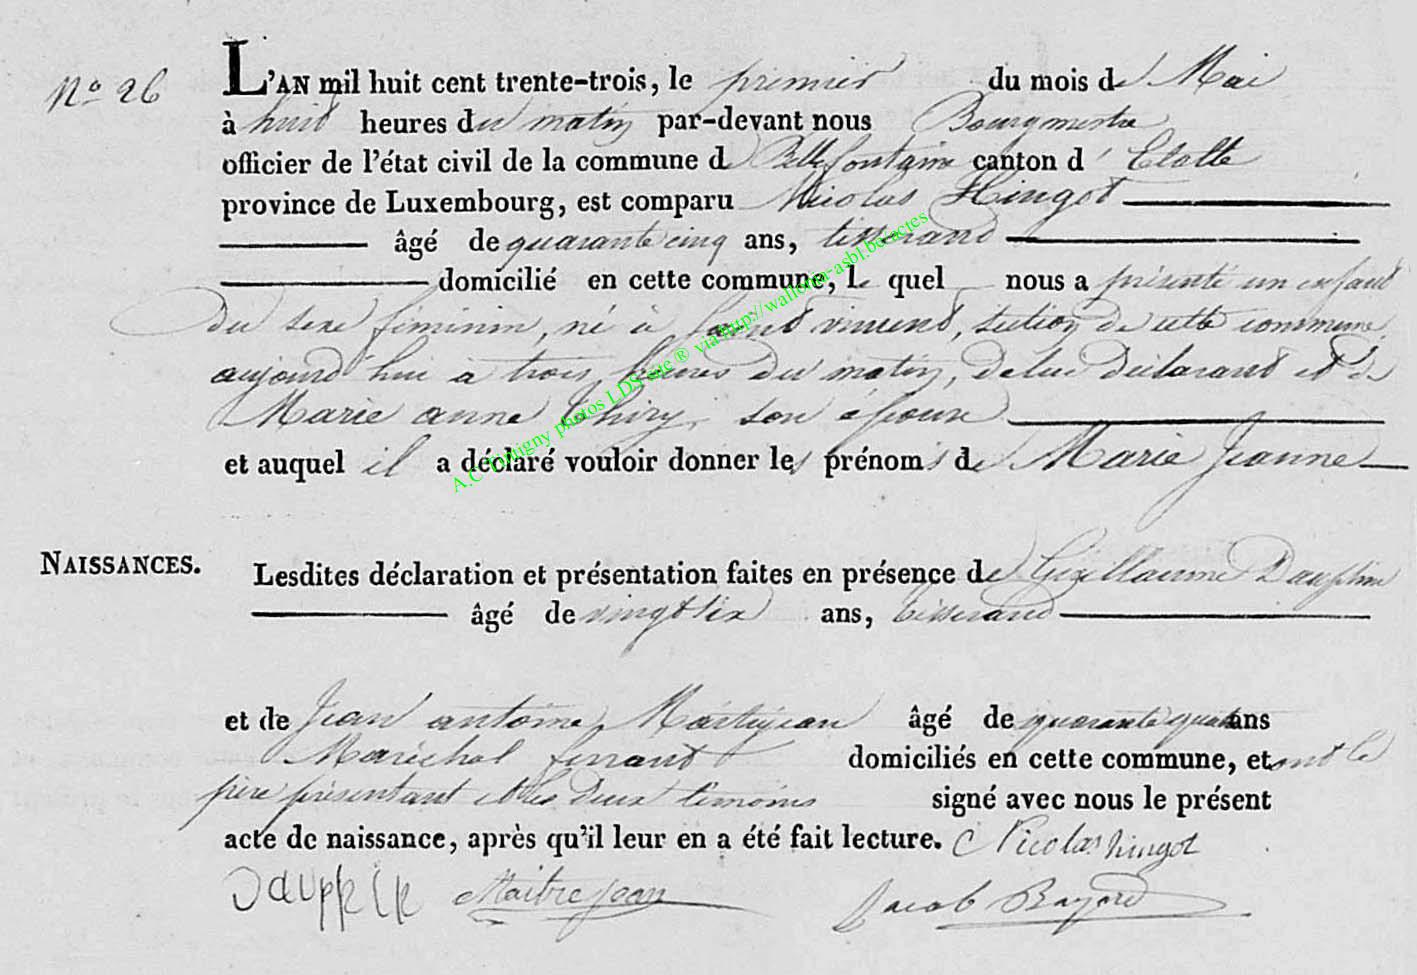 No 26
L'AN mil huit cent trente-trois, le premier du mois de Mai
à huit heures du matin par-devant nous Bourgmestre
officier de l'état civil de la commune de Bellefontaine canton d'Etalle
province de Luxembourg, est comparu Nicolas Hingot
âgé de quarante cinq ans, tisserand
domicilié en cette commune, le quel nous a présenté un enfant
du sexe féminin, né à vincent, section de cette commune,
aujourd'hui à trois heures du matin, de lui déclarant et de
Marie anne thiry, son épouse
et auquel il a déclaré vouloir donner les prénoms de Marie Jeanne
NAISSANCES.
Lesdites déclaration et présentation faites en présence de Guillaume Dauphin
âgé de vingt six ans, tisserand
et de Jean antoine âgé de quarante quatre ans
Maréchal ferrant domiciliés en cette commune, et ont le
père présentant et les deux témoins signé avec nous le présent
acte de naissance, après qu'il leur en a été fait lecture. Nicolas hingot
Maitrejean Jacob
A.C Tintigny photos LDS suc ® via http://wallonia-asbl.be/actes